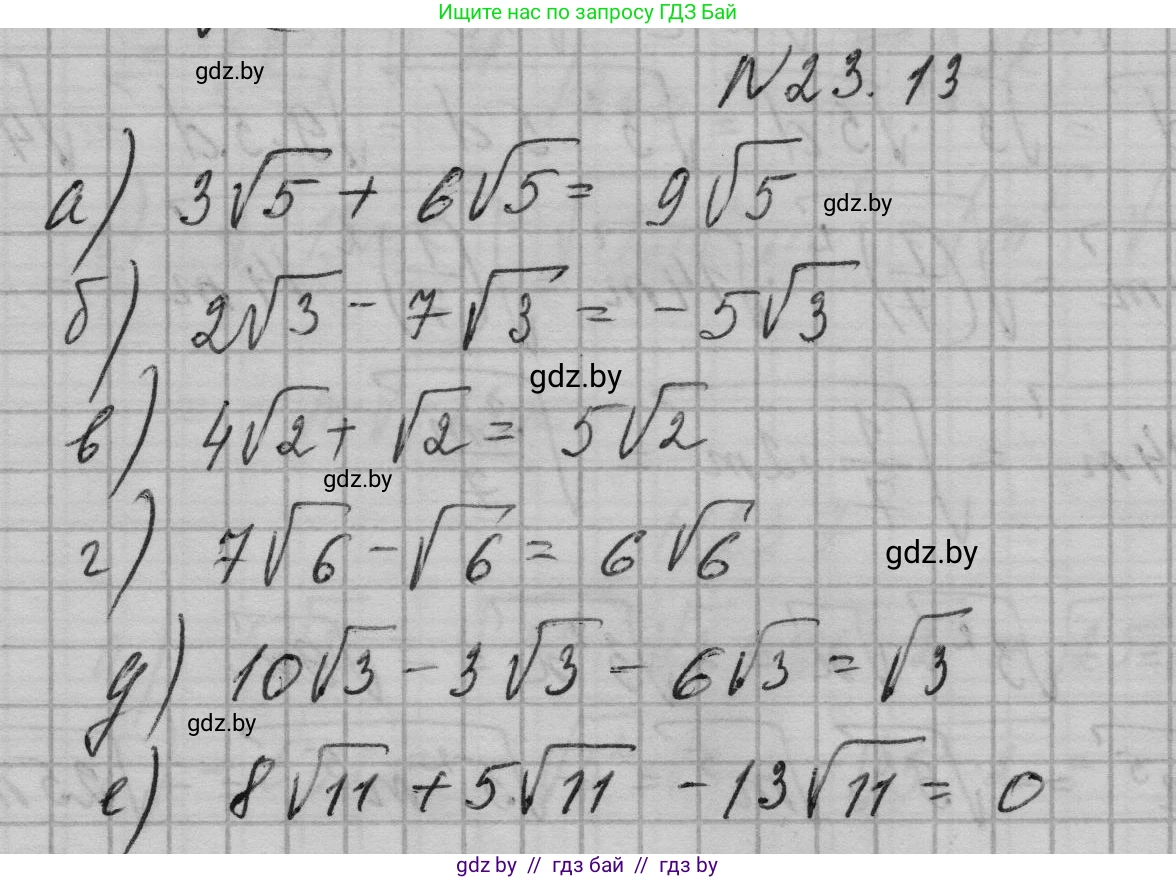 Ищите нас по запросу ГДЗ Бай
gdz.by
N 23.13
а) 3√5 + 6√5 = 9√5
gdz.by
б) 2√3 - 7√3 = -5√3
gdz.by
в) 4√2 + √2 = 5√2
gdz.by
г) 7√6 - √6 = 6√6
gdz.by
д) 10√3 - 3√3 - 6√3 = √3
gdz.by
е) 8√11 + 5√11 - 13√11 = 0
gdz.by // гдз бай // гдз by